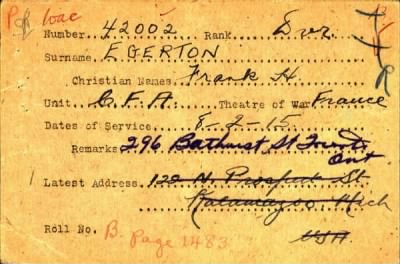 P. Wac
Number 42002 Rank Dvr.
Surname EGERTON
Christian Names Frank H.
Unit C.F.A. Theatre of War France
Dates of Service 8-2-15
Remarks 296 Bathurst St Toronto
Ont
1 Latest Address 122 N. Prospect St.
Kalamazoo Mich
Roll No. B. Page 1483 USA.